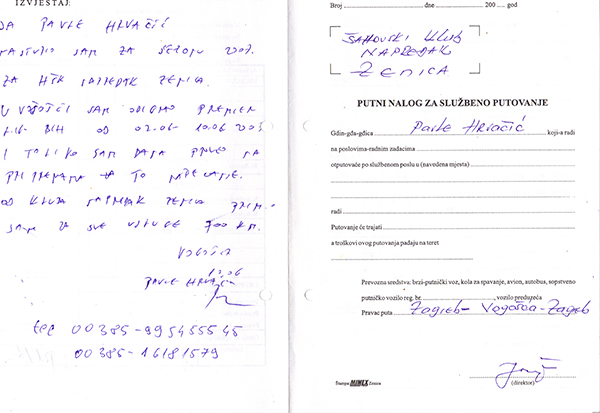 IZVJEŠTAJ:
JA PAVLE HRVAČIĆ
NASTUPIO SAM ZA SEZONU 2005.
ZA HŠK NAPREDAK ZENICA.
U VOGOŠĆI SAM ODIGRAO PREMIER
LIGU BIH OD 02.06- 10.06 2005
I TOLIKO SAM DANA PROVEO NA
PRIPREMAMA ZA TO NATJECANJE.
OD KLUBA NAPREDAK ZENICA PRIM.
SAM ZA SVE USLUGE 700 KM.
VOGOŠĆA
10.06
PAVLE HRVAČIĆ
tel 00385-995455545
00385-16181579
Broj dne 200 god
ŠAHOVSKI KLUB
NAPREDAK
ZENICA
PUTNI NALOG ZA SLUŽBENO PUTOVANJE
Gdin-gđa-gđica Pavle HRVAČIĆ koji-a radi
na poslovima-radnim zadacima
otputovaće po službenom poslu u (navedena mjesta)
radi
Putovanje će trajati
a troškovi ovog putovanja padaju na teret
Prevozna sredstva: brzi-putnički voz, kola za spavanje, avion, autobus, sopstveno
putničko vozilo reg. br. , vozilo preduzeća
Pravac puta Zagreb- Vogošća-Zagreb
(direktor)
Štampa MINEX Zenica